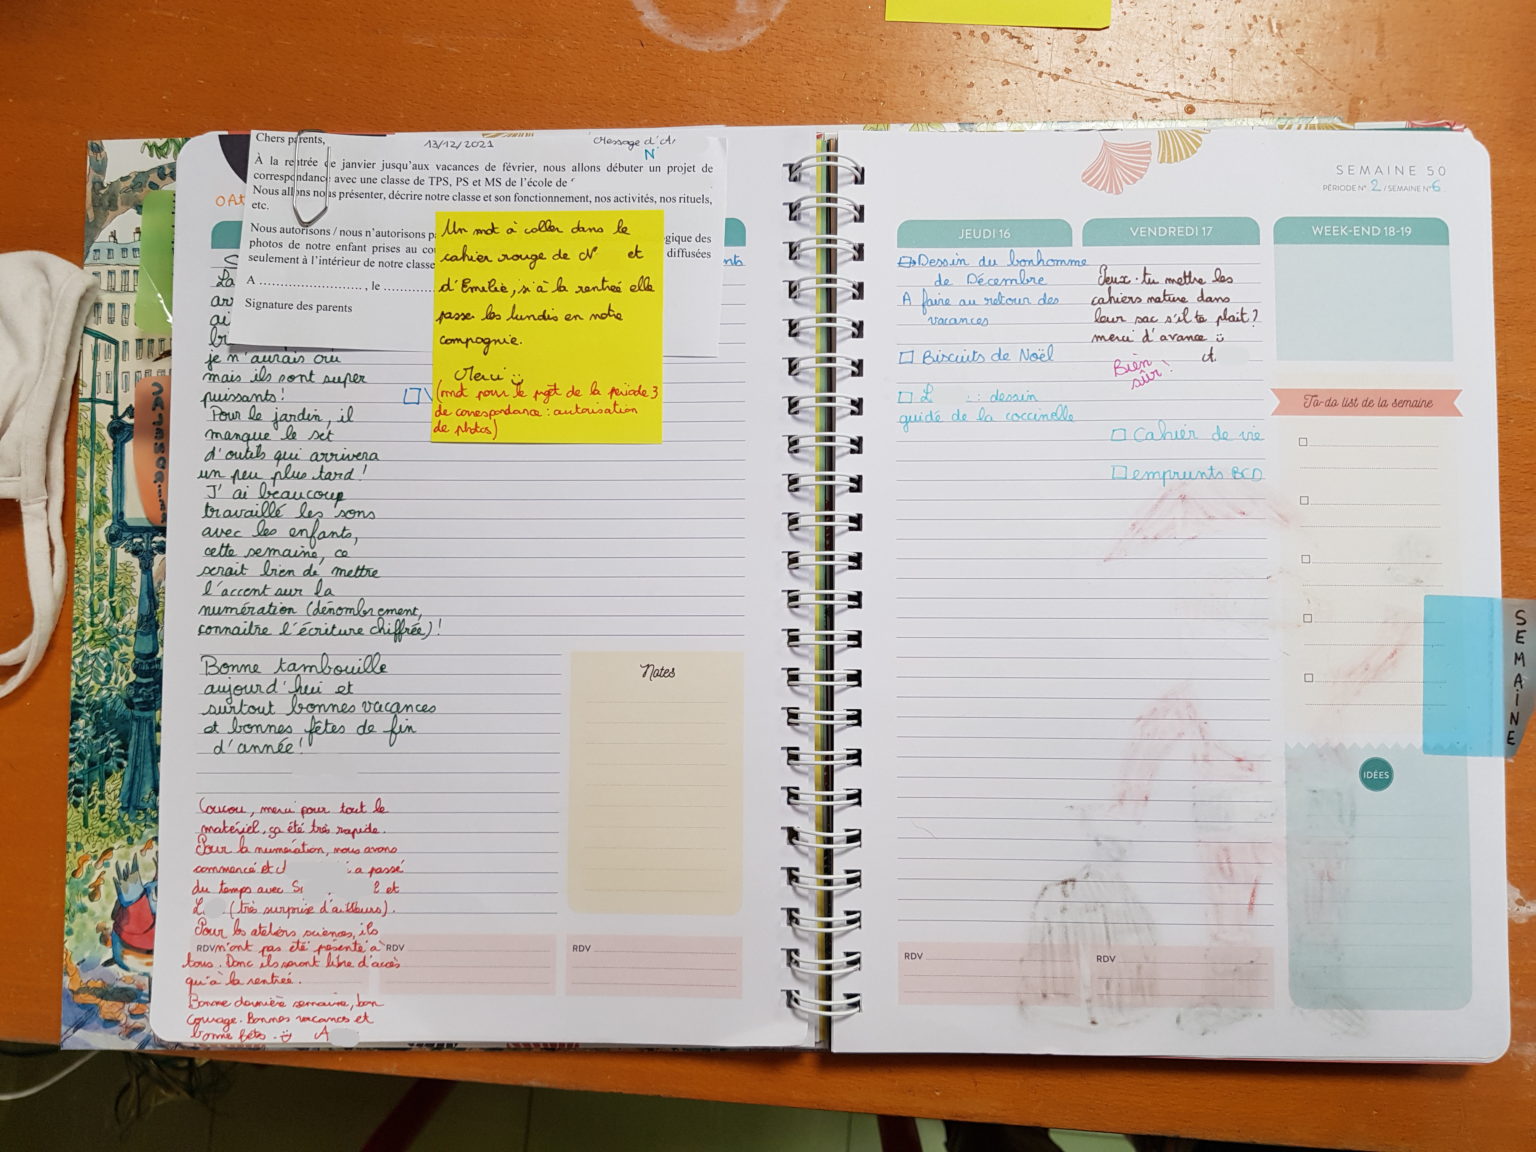 Chers parents,
13/12/2021
Message d'A
N
À la rentrée de janvier jusqu'aux vacances de février, nous allons débuter un projet de
correspondance avec une classe de TPS, PS et MS de l'école de
Nous allons nous présenter, décrire notre classe et son fonctionnement, nos activités, nos rituels,
etc.
Nous autorisons / nous n'autorisons p
gique des
photos de notre enfant prises au co
diffusées
seulement à l'intérieur de notre classe
A ........................ , le ................
Signature des parents
Un mot à coller dans le
cahier rouge de N et
d'Emilie, si à la rentrée elle
passe les lundis en notre
compagnie.
Merci
(mot pour le projet de la période 3
de correspondance : autorisation
de photos)
je n'aurais cru
mais ils sont super
puissants !
Pour le jardin, il
manque le set
d'outils qui arrivera
un peu plus tard !
J'ai beaucoup
travaillé les sons
avec les enfants,
cette semaine, ce
serait bien de mettre
l'accent sur la
numération (dénombrement,
connaître l'écriture chiffrée) !
Bonne tambouille
aujourd'hui et
surtout bonnes vacances
et bonnes fêtes de fin
d'année !
Coucou, merci pour tout le
matériel, ça été très rapide.
Pour la numération, nous avons
commencé et a passé
du temps avec S 2 et
L (très surprise d'ailleurs).
Pour les ateliers sciences, ils
n'ont pas été présenté à
tous. Donc ils seront libre d'accès
qu'à la rentrée.
Bonne dernière semaine, bon
courage. Bonnes vacances et
bonne fêtes. A
Notes
RDV
RDV
RDV
SEMAINE 50
PÉRIODE N° 2 / SEMAINE N° 6
JEUDI 16
Dessin du bonhomme
de Décembre
A faire au retour des
vacances
Biscuits de Noël
L : dessin
guidé de la coccinelle
RDV
VENDREDI 17
Peux-tu mettre les
cahiers nature dans
leur sac s'il te plait ?
merci d'avance
A.
Bien
sûr !
Cahier de vie
emprunts BCD
RDV
WEEK-END 18-19
To-do list de la semaine
IDÉES
SEMAINE